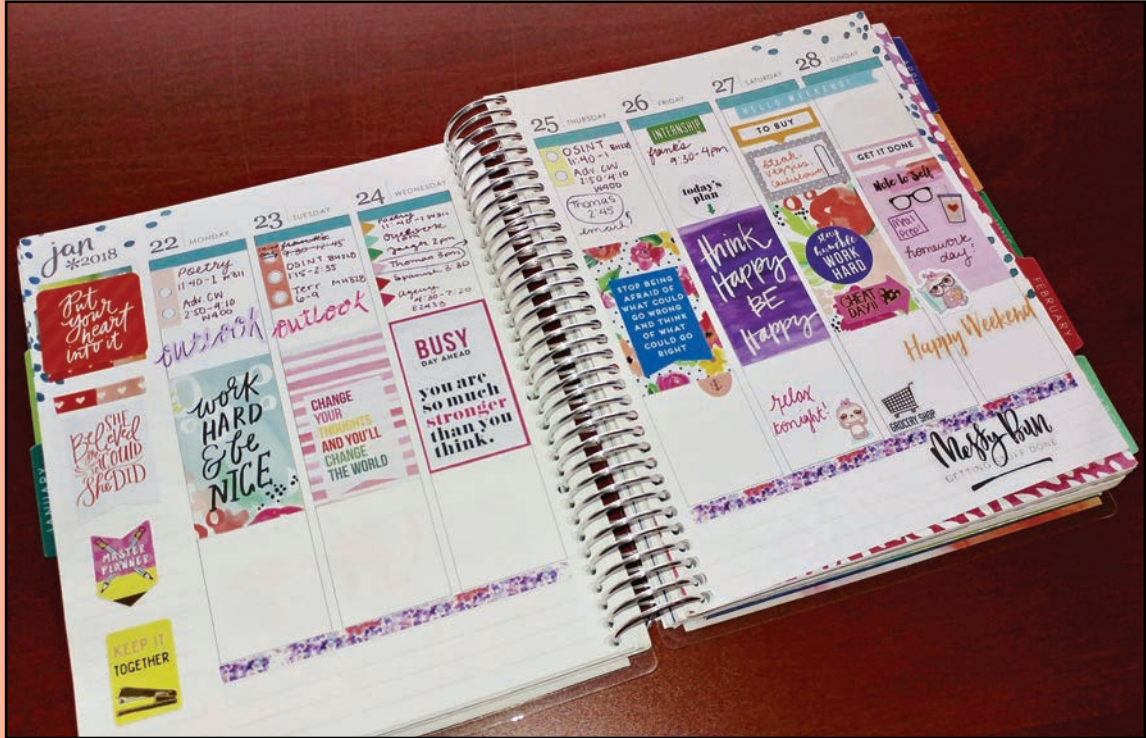 jan
*2018
Put
your
heart
into it
SHE
Believed
COULD
She DID
MASTER
PLANNER
KEEP IT
TOGETHER
JANUARY
22 MONDAY
Poetry
11:40-1 W311
Adv. CW
2:50-4:10
W400
outlook
work
HARD
& be
NICE
23 TUESDAY
OSINT BH210
1:15-2:35
Terr MH328
6-9
outlook
CHANGE
YOUR
THOUGHTS
AND YOU'LL
CHANGE
THE WORLD
24 WEDNESDAY
Poetry
11:40-1 W311
2pm
Thomas 3pm
Spanish 3:30
BUSY
DAY AHEAD
you are
so much
stronger
than you
think.
25 THURSDAY
OSINT BH210
11:40-1
Adv. CW
2:50-4:10
W400
Thomas
2:45
email
STOP BEING
AFRAID OF
WHAT COULD
GO WRONG
AND THINK
OF WHAT
COULD GO
RIGHT
26 FRIDAY
INTERNSHIP
franks
9:30-4pm
today's
plan
think
Happy
BE
Happy
relax
tonight!
27 SATURDAY
HELLO WEEKEND!
TO BUY
steak,
veggies,
stay
humble
WORK
HARD
CHEAT
DAY!!
GROCERY SHOP
28 SUNDAY
GET IT DONE
Note to Self
Meal
Prep!
homework
day!
Happy Weekend
Messy Bun
GETTING STUFF DONE
APRIL
FEBRUARY